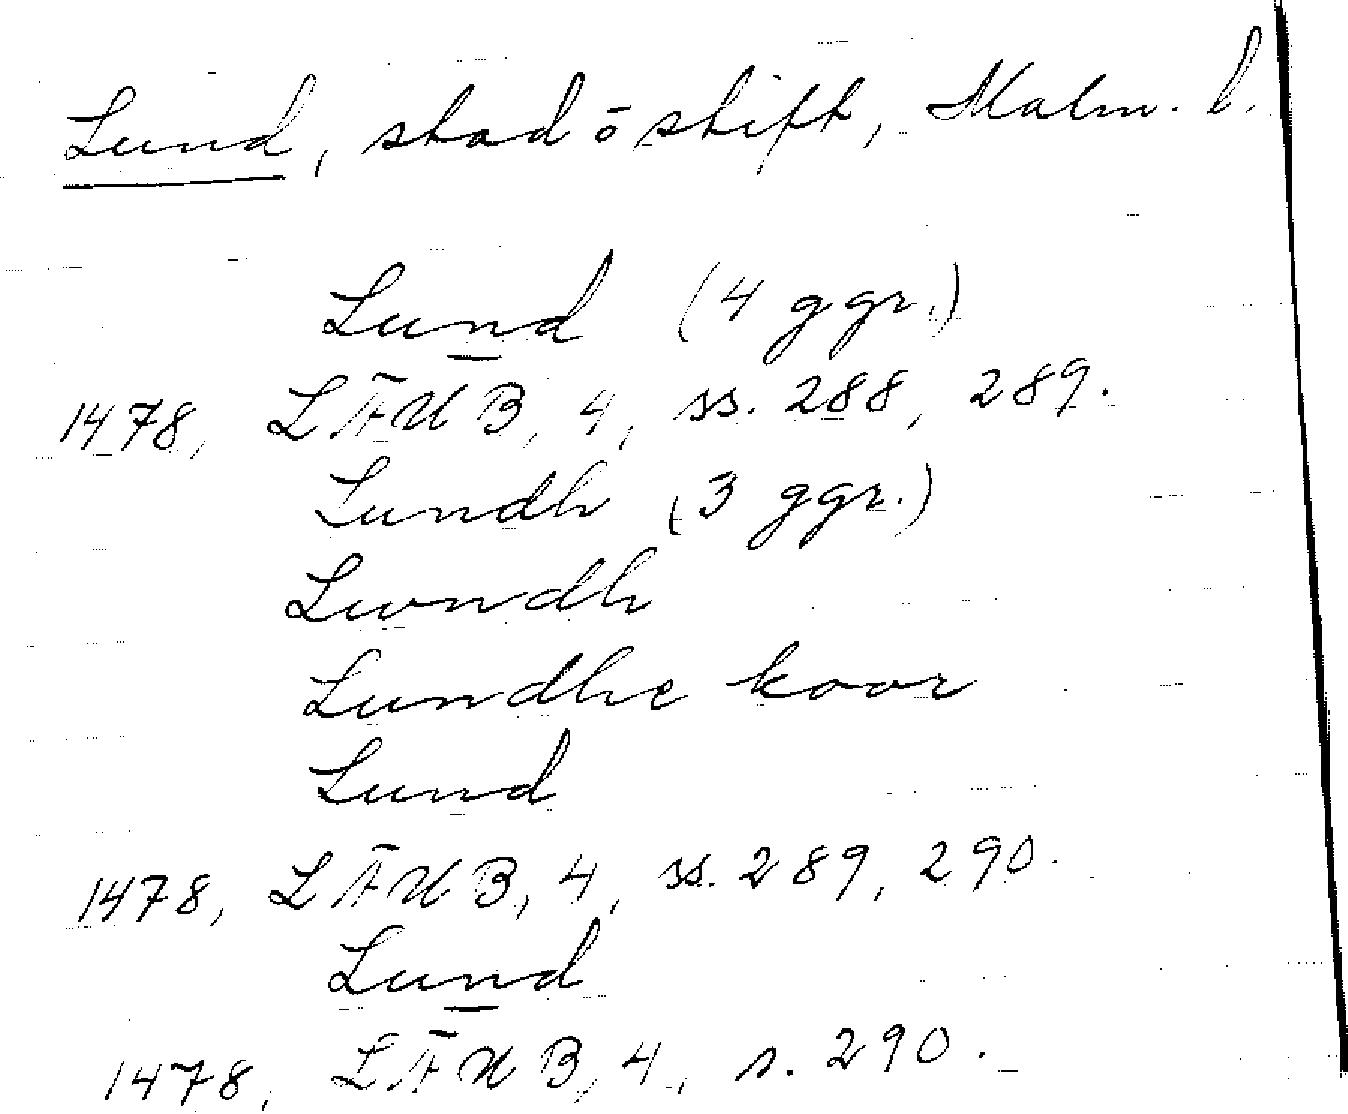 Lund, stad ō stift, Malm. l.
Lund (4 ggr.)
1478, LÄUB, 4, ss. 288, 289.
Lundh (3 ggr.)
Lwndh
Lundhe koor
Lund
1478, LÄUB, 4, ss. 289, 290.
Lund
1478, LÄUB, 4, s. 290.